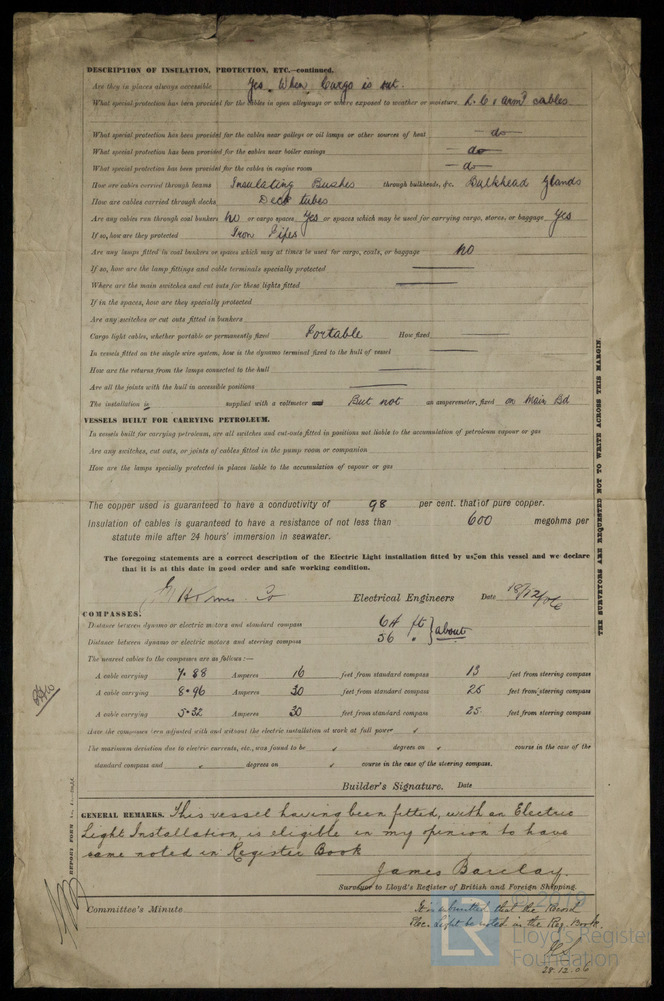 DESCRIPTION OF INSULATION, PROTECTION, ETC.—continued.
Are they in places always accessible Yes, When Cargo is out.
What special protection has been provided for the cables in open alleyways or where exposed to weather or moisture L.C. & armd cables
What special protection has been provided for the cables near galleys or oil lamps or other sources of heat — do —
What special protection has been provided for the cables near boiler casings — do —
What special protection has been provided for the cables in engine room — do —
How are cables carried through beams Insulating Bushes through bulkheads, &c. Bulkhead Glands
How are cables carried through decks Deck tubes
Are any cables run through coal bunkers No or cargo spaces Yes or spaces which may be used for carrying cargo, stores, or baggage Yes
If so, how are they protected Iron Pipes
Are any lamps fitted in coal bunkers or spaces which may at times be used for cargo, coals, or baggage No
If so, how are the lamp fittings and cable terminals specially protected
Where are the main switches and cut outs for these lights fitted
If in the spaces, how are they specially protected
Are any switches or cut outs fitted in bunkers
Cargo light cables, whether portable or permanently fixed Portable How fixed
In vessels fitted on the single wire system, how is the dynamo terminal fixed to the hull of vessel
How are the returns from the lamps connected to the hull
Are all the joints with the hull in accessible positions
The installation is supplied with a voltmeter and But not an amperemeter, fixed on Main Bd
VESSELS BUILT FOR CARRYING PETROLEUM.
In vessels built for carrying petroleum, are all switches and cut-outs fitted in positions not liable to the accumulation of petroleum vapour or gas
Are any switches, cut outs, or joints of cables fitted in the pump room or companion
How are the lamps specially protected in places liable to the accumulation of vapour or gas
The copper used is guaranteed to have a conductivity of 98 per cent. that of pure copper.
Insulation of cables is guaranteed to have a resistance of not less than 600 megohms per
statute mile after 24 hours' immersion in seawater.
The foregoing statements are a correct description of the Electric Light installation fitted by us on this vessel and we declare
that it is at this date in good order and safe working condition.
Co Electrical Engineers Date 18/12/06
COMPASSES.
Distance between dynamo or electric motors and standard compass 64 ft
Distance between dynamo or electric motors and steering compass 56 " } about
The nearest cables to the compasses are as follows:—
A cable carrying 7.88 Amperes 16 feet from standard compass 13 feet from steering compass
A cable carrying 8.96 Amperes 30 feet from standard compass 25 feet from steering compass
A cable carrying 5.32 Amperes 30 feet from standard compass 25 feet from steering compass
Have the compasses been adjusted with and without the electric installation at work at full power
The maximum deviation due to electric currents, etc., was found to be degrees on course in the case of the
standard compass and degrees on course in the case of the steering compass.
Builder's Signature. Date
GENERAL REMARKS. This vessel having been fitted, with an Electric
Light Installation, is eligible in my opinion to have
same noted in Register Book
James Barclay.
Surveyor to Lloyd's Register of British and Foreign Shipping.
Committee's Minute
It is submitted that the Record
Elec. Light be noted in the Reg. Book.
28.12.06
THE SURVEYORS ARE REQUESTED NOT TO WRITE ACROSS THIS MARGIN.
REPORT FORM
LR
Lloyd's Register
Foundation